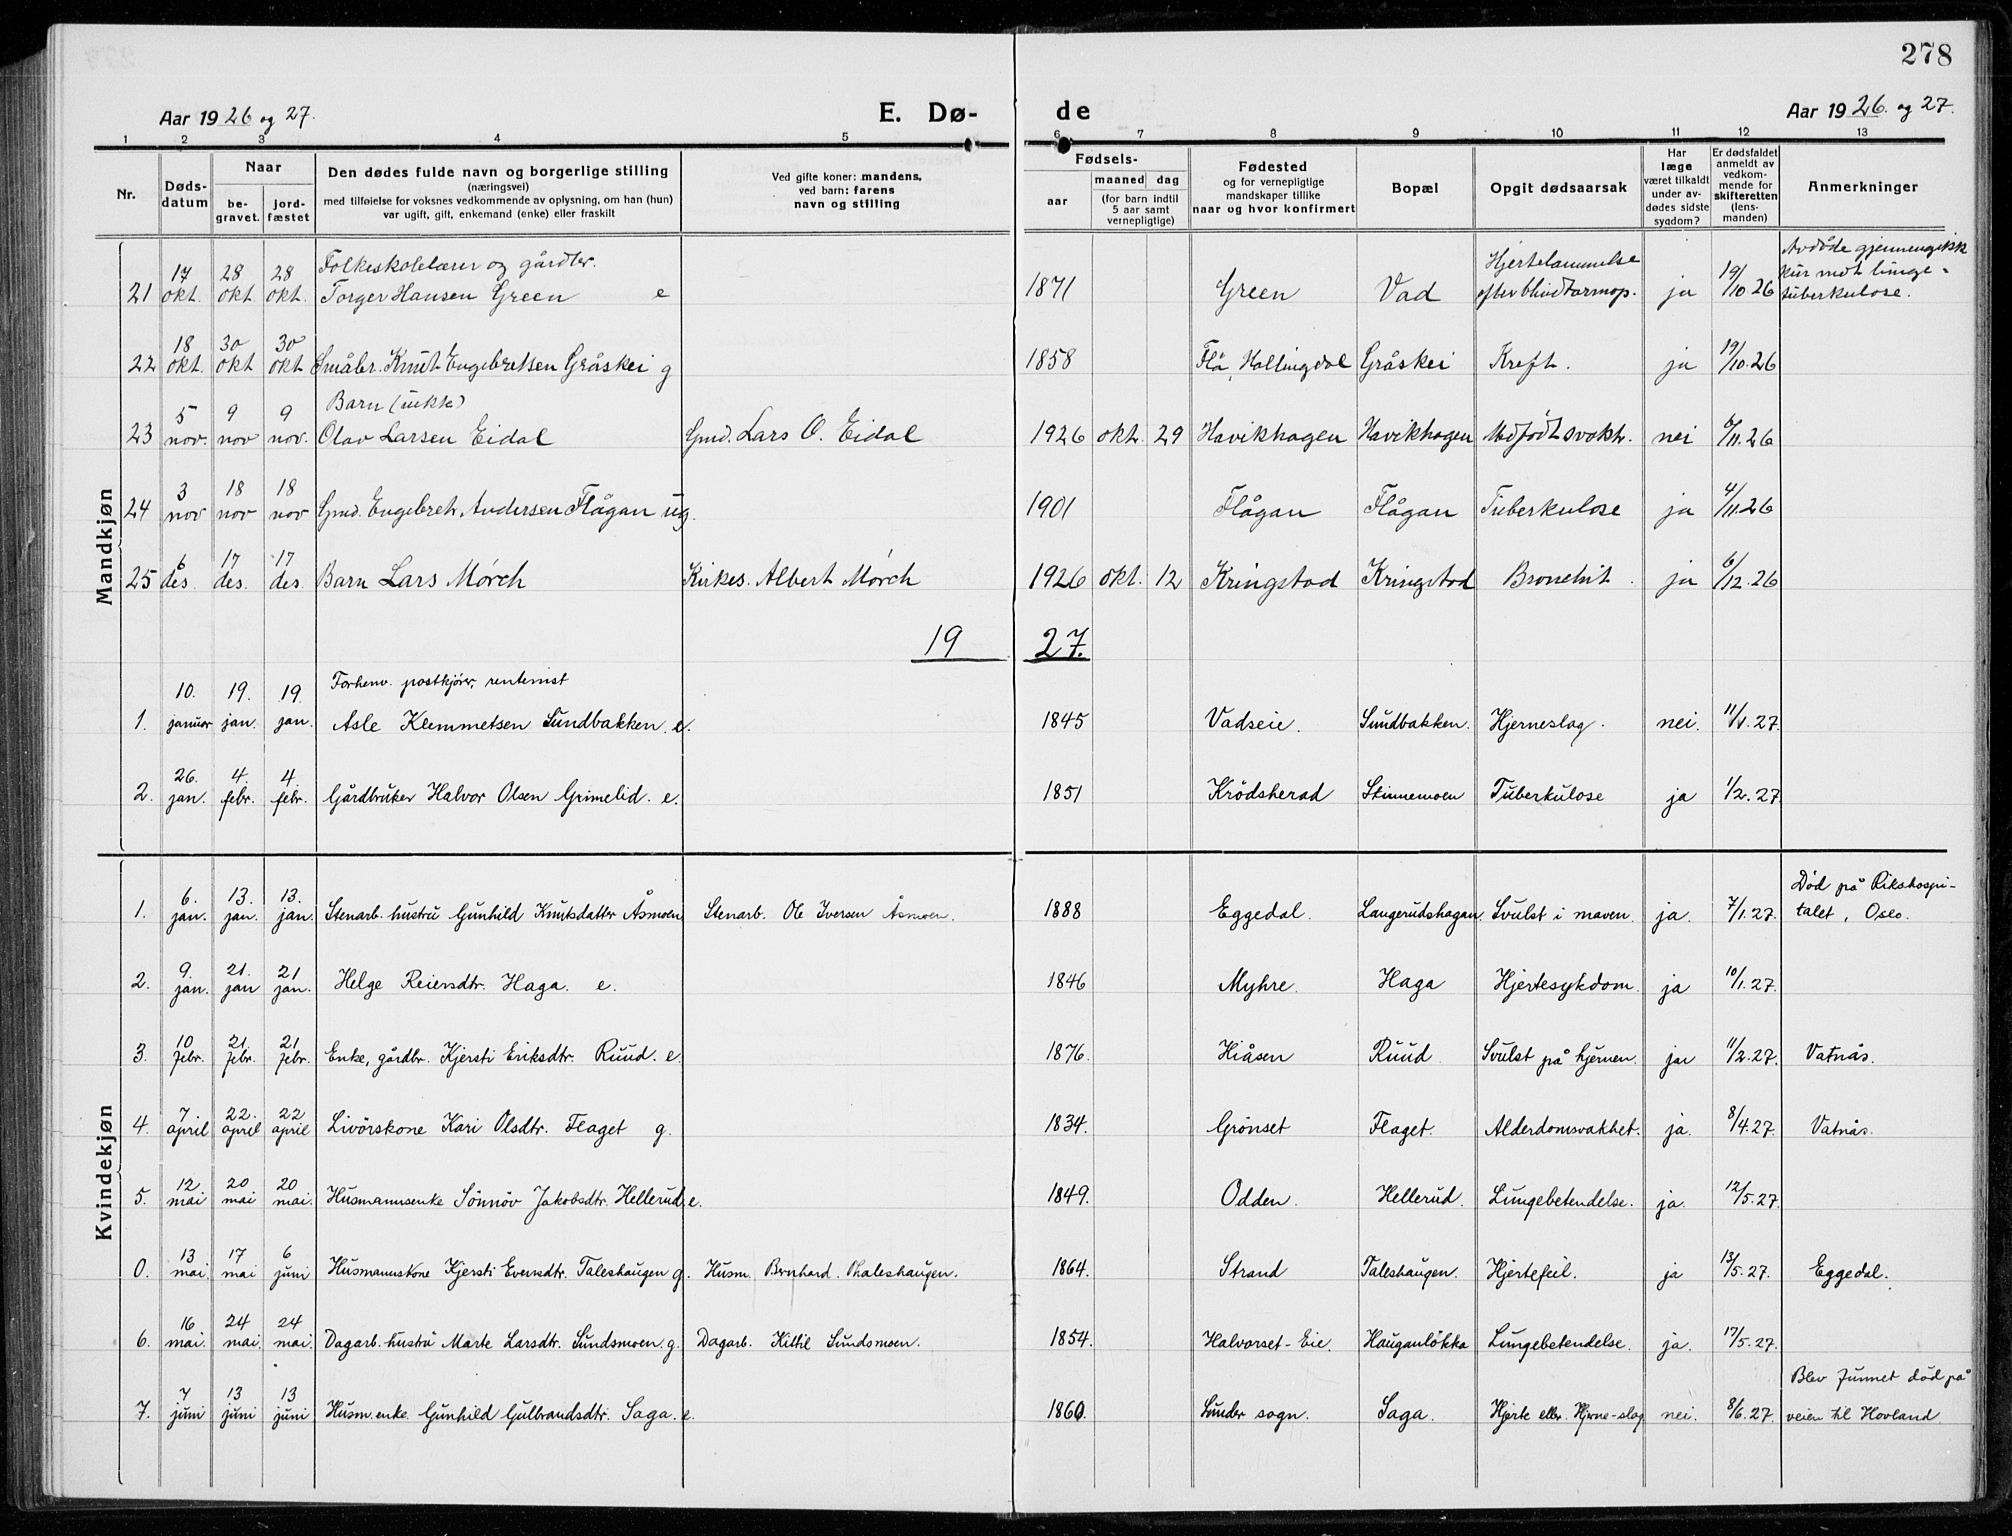 278
Aar 1926 og 27. E. Dø- de Aar 1926. og 27.
1 2 3 4 5 6 7 8 9 10 11 12 13
Nr. Døds-datum Naar be-gravet. jord-fæstet Den dødes fulde navn og borgerlige stilling (næringsvei) med tilføielse for voksnes vedkommende av oplysning, om han (hun) var ugift, gift, enkemand (enke) eller fraskilt Ved gifte koner: mandens, ved barn: farens navn og stilling Fødsels- aar maaned dag (for barn indtil 5 aar samt vernepligtige) Fødested og for vernepligtige mandskaper tillike naar og hvor konfirmert Bopæl Opgit dødsaarsak Har læge været tilkaldt under av-dødes sidste sygdom? Er dødsfaldet anmeldt av vedkom-mende for skifteretten (lens-manden) Anmerkninger
Mandkjøn
21 17 okt. 28 okt. 28 okt. Folkeskolelærer og gårdbr. Torger Hansen Green e 1871 Green Vad Hjertelammelse efter blindtarmop. ja 19/10 26 Avdøde gjennemgikk kur mot lunge-tuberkulose.
22 18 okt. 30 okt 30 okt Småbr. Knut Engebretsen Gråskei g 1858 Flå, Hallingdal Gråskei Kreft. ja 19/10.26
23 5 nov. 9 nov 9 nov. Barn (uekte) Olav Larsen Eidal Gmd. Lars O. Eidal 1926 okt. 29 Havikhagen Havikhagen Medfødt svakh. nei 6/11.26
24 3 nov 18 nov 18 nov Gmd. Engebreth Andersen Flågan ug. 1901 Flågan Flågan Tuberkulose ja 4/11.26
25 6 des. 17 des. 17 des. Barn Lars Mørch Kirkes. Albert Mørch 1926 okt. 12 Kringstad Kringstad Bronchit. ja 6/12.26
19 27.
1. 10. januar 19. jan. 19. jan. Forhenv. postkjører, rentenist Asle Klemmetsen Sundbakken. e. 1845 Vadseie. Sundbakken. Hjerneslag. nei. 11/1.27.
2. 26. jan. 4. febr. 4. febr. Gårdbruker Halvor Olsen Grimelid. e. 1851 Krödsherad Stinnemoen Tuberkulose ja 1/2.27.
Kvindekjøn
1. 6. jan. 13. jan. 13. jan. Stenarb. hustru Gunhild Knutsdatter Åsmoen Stenarb. Ole Iversen Åsmoen. 1888 Eggedal. Langerudshagan. Svulst i maven. ja. 7/1.27. Död på Rikshospi-talet, Oslo.
2. 9. jan. 21. jan 21 jan. Helge Reiersdtr. Haga. e. 1846 Myhre. Haga Hjertesykdom. ja 10/1.27.
3. 10 febr. 21. febr. 21 febr. Enke, gårdbr. Kjersti Eriksdtr. Ruud. e. 1876. Hiåsen Ruud Svulst på hjernen. ja 11/2.27. Vatnås.
4. 7 april 22. april 22 april Livörskone Kari Olsdtr. Flaget g. 1834. Grönset Flaget. Alderdomsvakhet. ja. 8/4.27. Vatnås.
5. 12 mai 20 mai 20 mai. Husmannsenke Sönnöv Jakobsdtr. Hellerud. e. 1849. Odden. Hellerud. Lungebetendelse. ja. 12/5.27.
0. 13 mai. 17 mai 6 juni Husmannskone Kjersti Evensdtr. Taleshaugen g. Husm. Bernhard. Thaleshaugen. 1864. Strand Taleshaugen. Hjertefeil. ja 13/5.27. Eggedal.
6. 16 mai. 24 mai. 24 mai. Dagarb. hustru Marte Larsdtr. Sundsmoen. g. Dagarb. Kittil Sundsmoen. 1854. Halvorset-Eie. Hauganlökka Lungebetendelse. ja. 17/5.27.
7. 7 juni 13 juni 13 juni Husm.enke Gunhild Gulbrandsdtr. Saga. e. 1860. Lunder sogn. Saga. Hjerte eller Hjerne-slag nei. 8/6.27. Blev funnet död på veien til Hovland